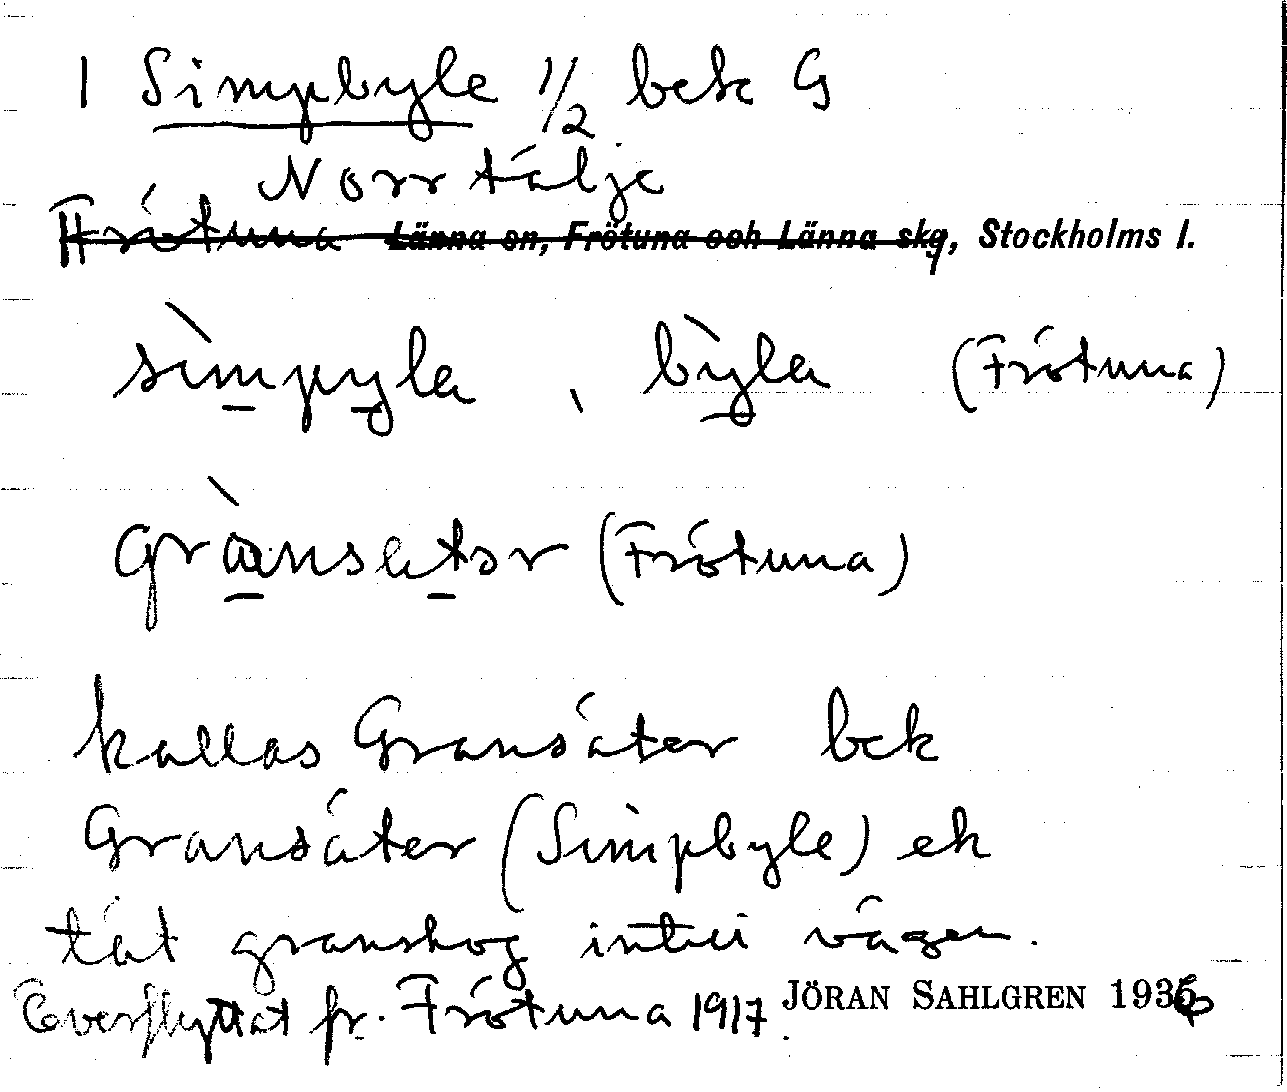 1 Simpbyle 1/2 bek G
Norrtälje
Frötuna Länna sn, Frötuna och Länna skg, Stockholms l.
sìmpyla, bỳla (Frötuna)
grànsetər (Frötuna)
kallas Gransäter bek
Gransäter (Simpbyle) ek
tät granskog intill vägen.
Överflyttat fr. Frötuna 1917.
JÖRAN SAHLGREN 1936